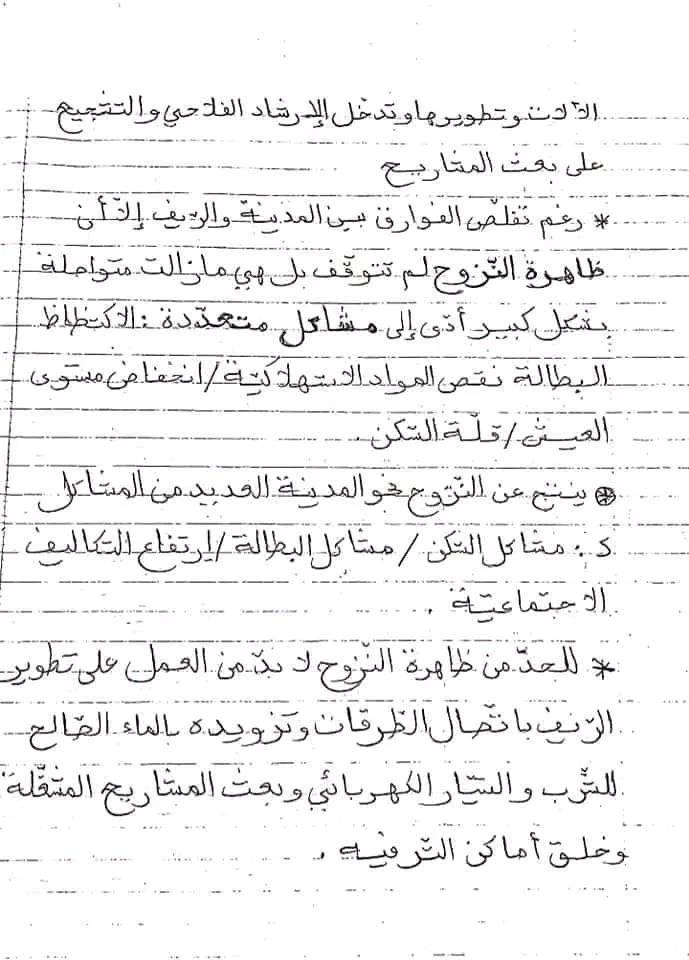 الآلات وتطويرها وتدخل الإرشاد الفلاحي والتشجيع
على بعث المشاريع
* رغم تقلّص الفوارق بين المدينة والرّيف إلاّ أن
ظاهرة النّزوح لم تتوقّف بل هي مازالت متواصلة
بشكل كبير أدّى إلى مشاكل متعدّدة : الاكتظاظ
البطالة نقص المواد الاستهلاكيّة / انخفاض مستوى
العيش / قلّة السّكن .
* ينتج عن النّزوح نحو المدينة العديد من المشاكل
كـ : مشاكل السّكن / مشاكل البطالة / ارتفاع التّكاليف
الاجتماعيّة .
* للحدّ من ظاهرة النّزوح لا بدّ من العمل على تطوير
الرّيف باتّصال الطّرقات وتزويده بالماء الصّالح
للشّرب والتيّار الكهربائي وبعث المشاريع المشغّلة
وخلق أماكن التّرفيه .